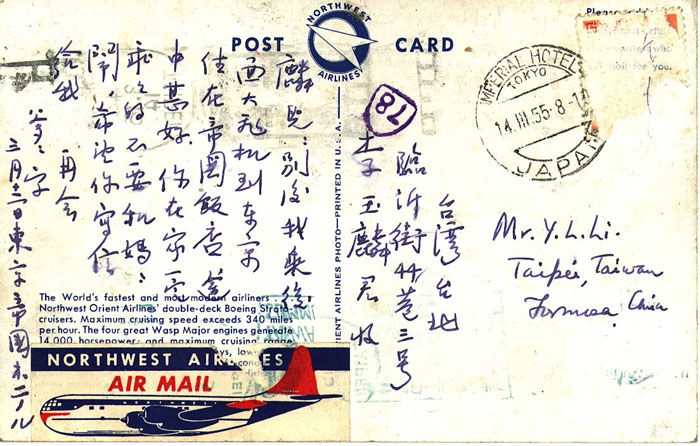 POST CARD
NORTHWEST
AIRLINES
麟兒:別後我乘統
西大飛机到东京
住在帝国飯店
中甚好你在家
乖的不要和媽:
鬧希望你守信
給我 再会
爹:字
三月十二日東京帝國ホテル
台湾台北
臨沂街44巷三号
玉麟君收
78
IMPERIAL HOTEL
TOKYO
14.III.55-8-1
JAPAN
Mr. Y. L. Li.
Taipei, Taiwan
Formosa, China
AIRLINES PHOTO—PRINTED IN U.S.A.
The World's fastest and most modern airliners
Northwest Orient Airlines' double-deck Boeing Strato-
cruisers. Maximum cruising speed exceeds 340 miles
per hour. The four great Wasp Major engines generate
14,000 horsepower, and maximum cruising range
NORTHWEST AIRLINES
AIR MAIL